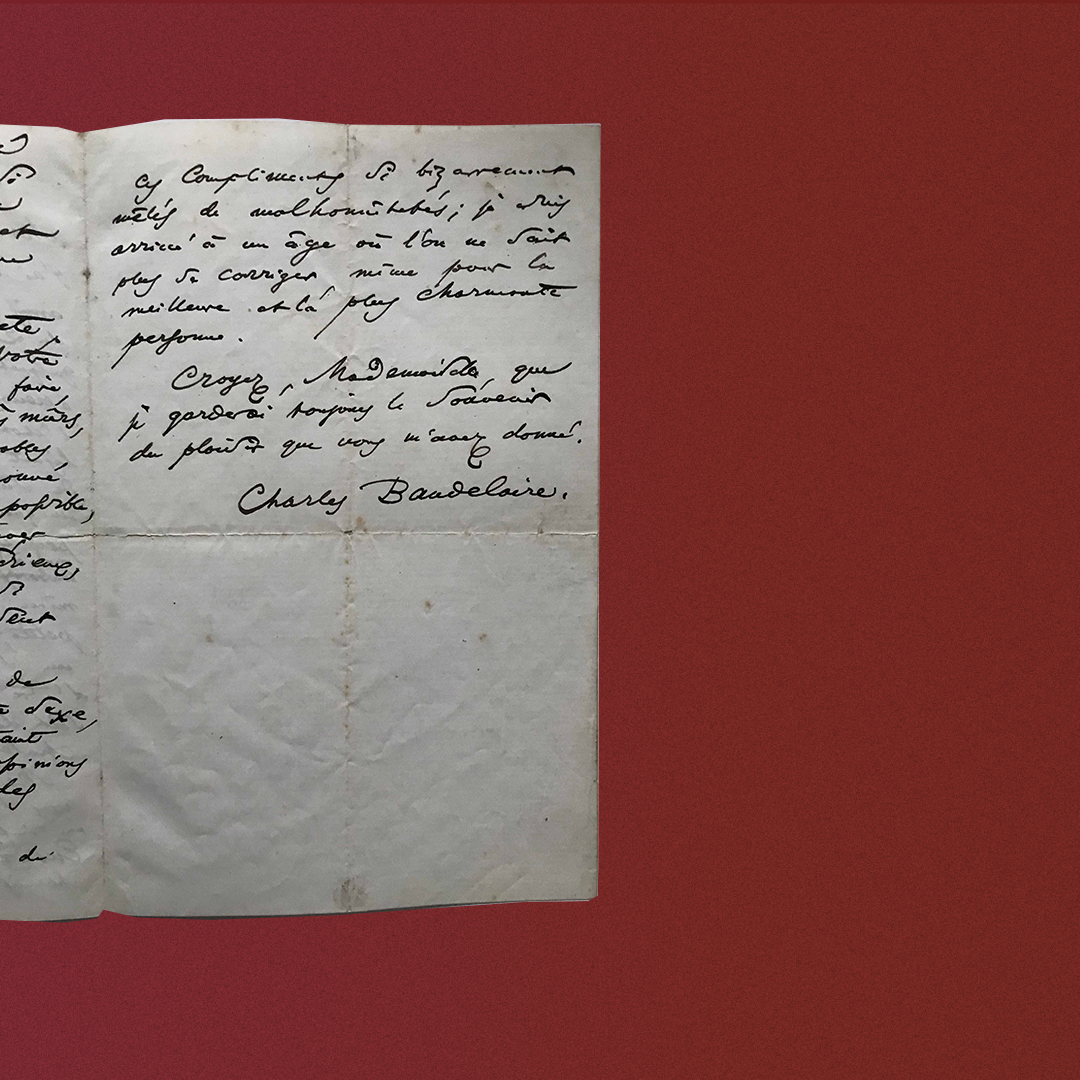 si
et
ete,
votre
faire,
mûrs,
ables
ouvé
possible,
érieux,
de
sexe,
aint
opinions
les
de
ces compliments si bizarrement
mêlés de malhonnêtetés ; je suis
arrivé à un âge où l'on ne sait
plus se corriger même pour la
meilleure et la plus charmante
personne.
Croyez, Mademoiselle, que
je garderai toujours le souvenir
du plaisir que vous m'avez donné.
Charles Baudelaire.